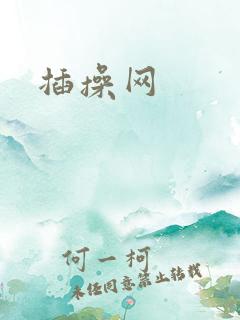 插操网
何一柯
未经同意禁止转载